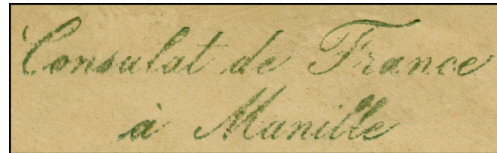 Consulat de France
à Manille